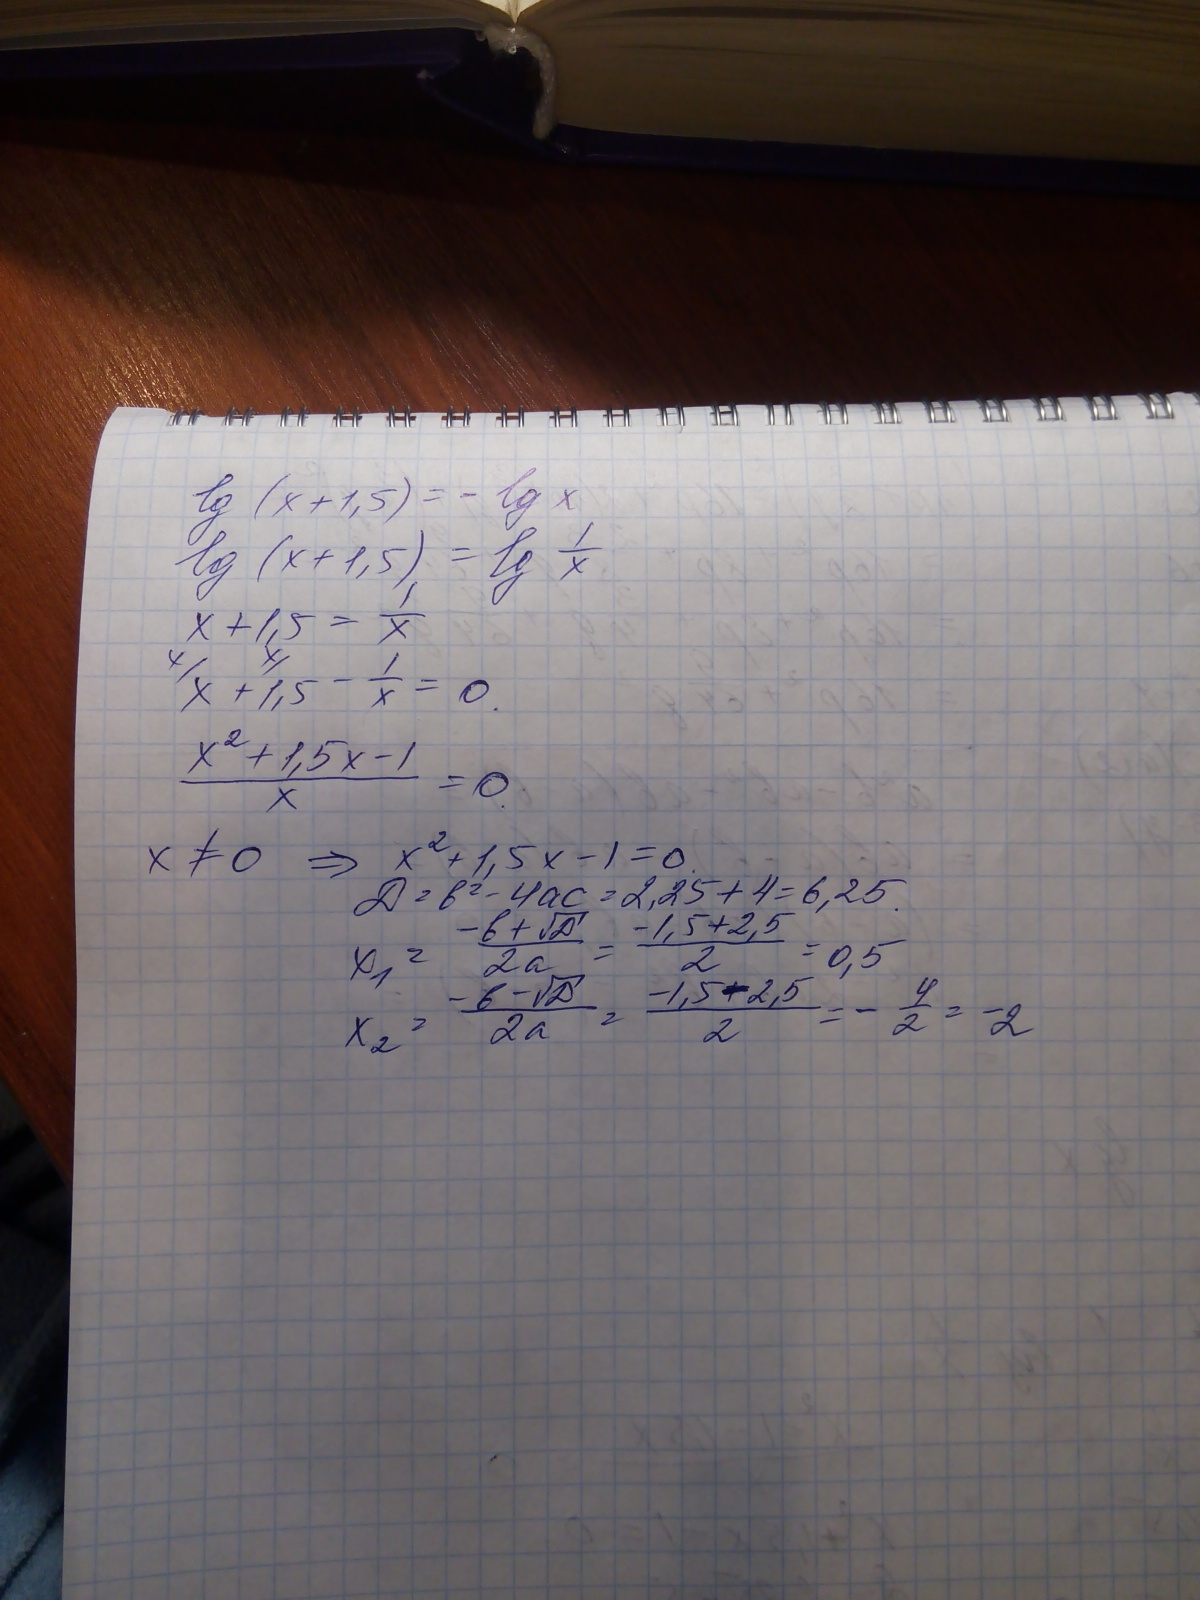 lg (x+1,5) = - lg x
lg (x+1,5) = lg 1/x
x+1,5 = 1/x
x/ x/
x + 1,5 - 1/x = 0.
(x²+1,5x-1)/x = 0.
x ≠ 0 ⇒ x²+1,5x-1=0.
D = b²-4ac = 2,25+4 = 6,25.
x₁ = (-b+√D)/2a = (-1,5+2,5)/2 = 0,5
x₂ = (-b-√D)/2a = (-1,5-2,5)/2 = -4/2 = -2